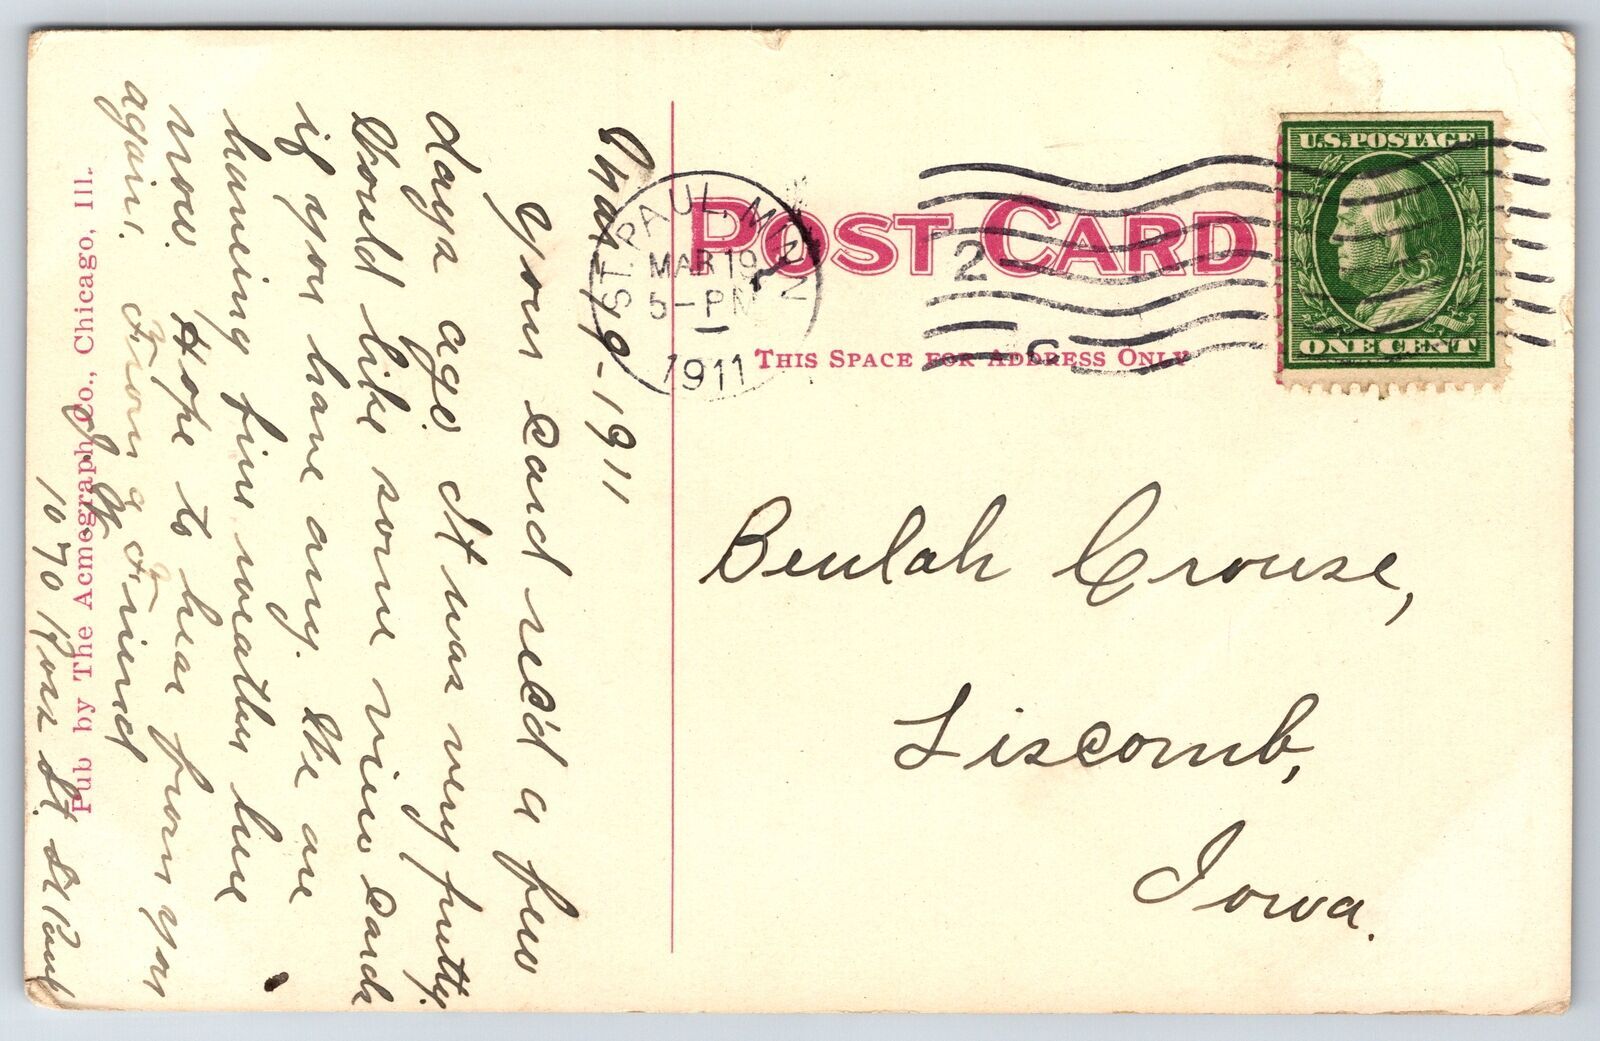 Mar. 19-1911
your card rec'd a few
days ago. It was very pretty.
Would like some view cards
if you have any. We are
having fine weather here
now. Hope to hear from you
again. From a Friend
1070 Ross St. St Paul
Pub by The Acmegraph Co., Chicago, Ill.
POST CARD
THIS SPACE FOR ADDRESS ONLY
ST. PAUL, MINN
MAR 19
5-PM
1911
2
C
U.S. POSTAGE
ONE CENT
Beulah Crouse,
Liscomb,
Iowa.